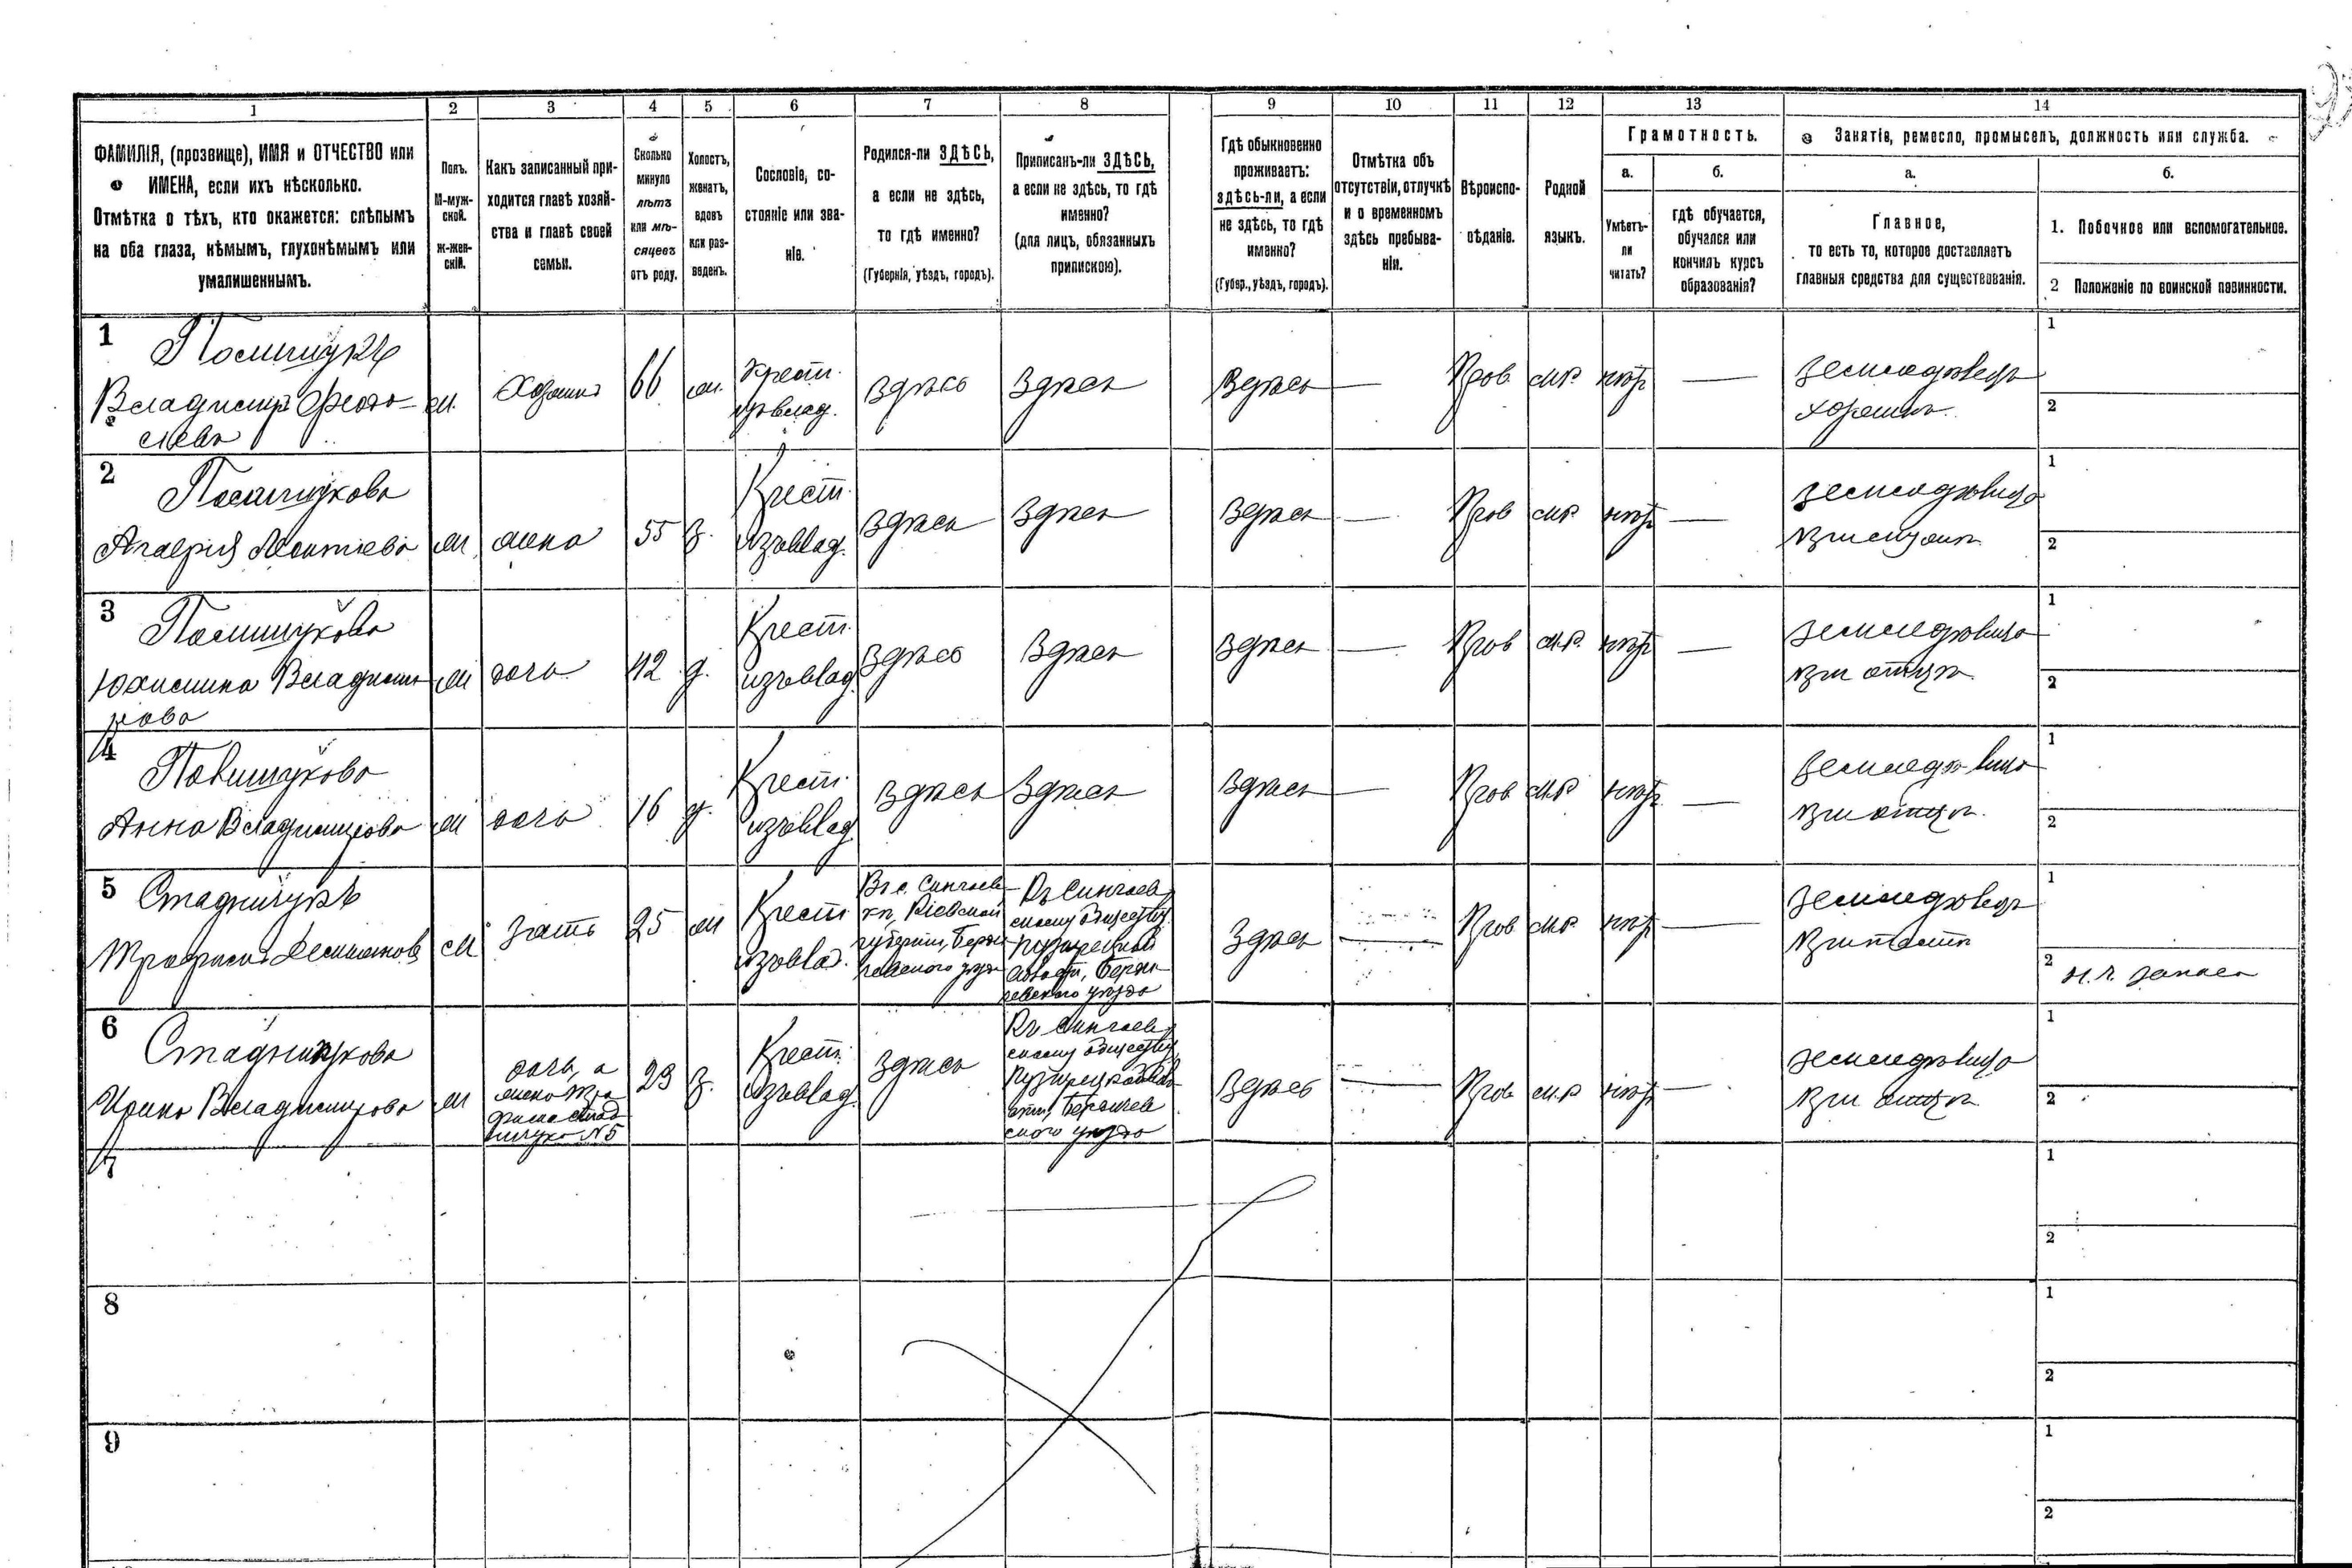 1 2 3 4 5 6 7 8 9 10 11 12 13 14
ФАМИЛІЯ, (прозвище), ИМЯ и ОТЧЕСТВО или
ИМЕНА, если ихъ нѣсколько.
Отмѣтка о тѣхъ, кто окажется: слѣпымъ
на оба глаза, нѣмымъ, глухонѣмымъ или
умалишеннымъ.
Полъ.
М-муж-
ской.
Ж-жен-
скій.
Какъ записанный при-
ходится главѣ хозяй-
ства и главѣ своей
семьи.
Сколько
минуло
лѣтъ
или мѣ-
сяцевъ
отъ роду.
Холостъ,
женатъ,
вдовъ
или раз-
веденъ.
Сословіе, со-
стояніе или зва-
ніе.
Родился-ли ЗДѢСЬ,
а если не здѣсь,
то гдѣ именно?
(Губернія, уѣздъ, городъ).
Приписанъ-ли ЗДѢСЬ,
а если не здѣсь, то гдѣ
именно?
(для лицъ, обязанныхъ
припискою).
Гдѣ обыкновенно
проживаетъ:
здѣсь-ли, а если
не здѣсь, то гдѣ
именно?
(Губер., уѣздъ, городъ).
Отмѣтка объ
отсутствіи, отлучкѣ
и о временномъ
здѣсь пребыва-
ніи.
Вѣроиспо-
вѣданіе.
Родной
языкъ.
Грамотность.
а.
Умѣетъ-
ли
читать?
б.
гдѣ обучается,
обучался или
кончилъ курсъ
образованія?
Занятіе, ремесло, промыселъ, должность или служба.
а.
Главное,
то есть то, которое доставляетъ
главныя средства для существованія.
б.
1. Побочное или вспомогательное.
2 Положеніе по воинской повинности.
1
Полищукъ
Владимиръ
м. Хозяинъ 66 ж. Крест.
изъ влад. здѣсь Здѣсь Здѣсь — Прав. м.р. нѣтъ — земледѣлецъ
хозяинъ
1
2
2
Полищукова
Леонтiева
ж жена 55 з. Крест.
изъ влад. Здѣсь Здѣсь Здѣсь — Прав м.р. нѣтъ — земледѣлица
при мужѣ
1
2
3
Полищукова
Владими
рова
ж дочь д. Крест.
изъ влад. Здѣсь Здѣсь Здѣсь — Прав м.р. нѣтъ — земледѣлица
при отцѣ
1
2
4
Полищукова
Анна Владимирова
ж дочь 16 д. Крест.
изъ влад. Здѣсь Здѣсь Здѣсь — Прав м.р. нѣтъ — земледѣлица
при отцѣ.
1
2
5
Стадничукъ
м зять 25 ж Крест
изъ влад.
Кіевской
губерніи, Берди
чевскаго уѣзда
скому обществу
Берди
чевскаго уѣзда
Здѣсь — Прав м.р. нѣтъ — земледѣлецъ
при тестѣ
1
2
6
Стадничукова
Ирина Владимирова
ж дочь, а
жена Тро
фима Стад
ничука №5
23 з. Крест.
изъ влад. Здѣсь
скому обществу
Бердичев
скаго уѣзда
Здѣсь — Прав м.р. нѣтъ — земледѣлица
при отцѣ
1
2
7
1
2
8
1
2
9
1
2